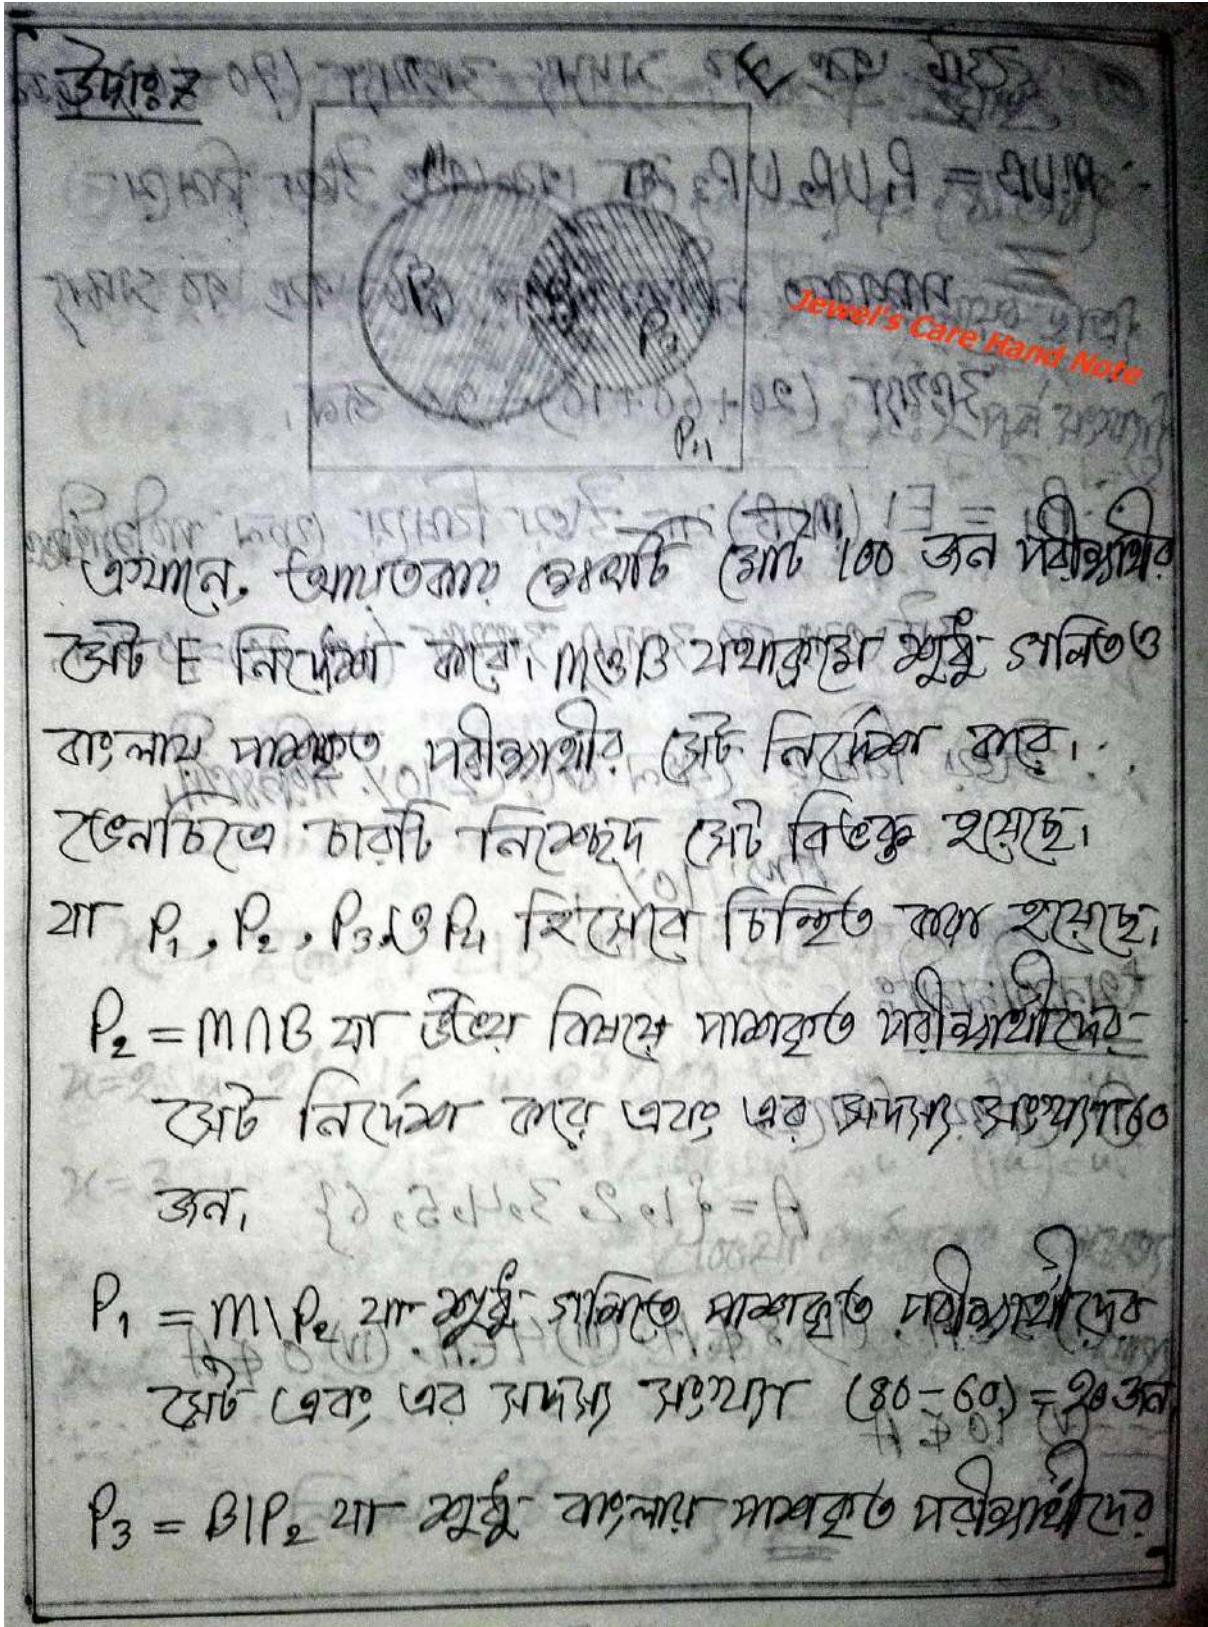 উদাঃ ৪
E
P₁
P₃
P₄
Jewel's Care Hand Note
এখানে, আয়তকার ক্ষেত্রটি মোট 100 জন পরীক্ষার্থীর
সেট E নির্দেশ করে। M ও B যথাক্রমে শুধু গনিত ও
বাংলায় পাশকৃত পরীক্ষার্থীর সেট নির্দেশ করে।
ভেনচিত্রে চারটি নিশ্ছেদ সেট বিভক্ত হয়েছে।
যা P₁, P₂, P₃, ও P₄ হিসেবে চিহ্নিত করা হয়েছে।
P₂ = M∩B যা উভয় বিষয়ে পাশকৃত পরীক্ষার্থীদের
সেট নির্দেশ করে এবং এর সদস্য সংখ্যা 60
জন।
P₁ = M\P₂ যা শুধু গনিতে পাশকৃত পরীক্ষার্থীদের
সেট এবং এর সদস্য সংখ্যা (80-60) = 20 জন
P₃ = B\P₂ যা শুধু বাংলায় পাশকৃত পরীক্ষার্থীদের